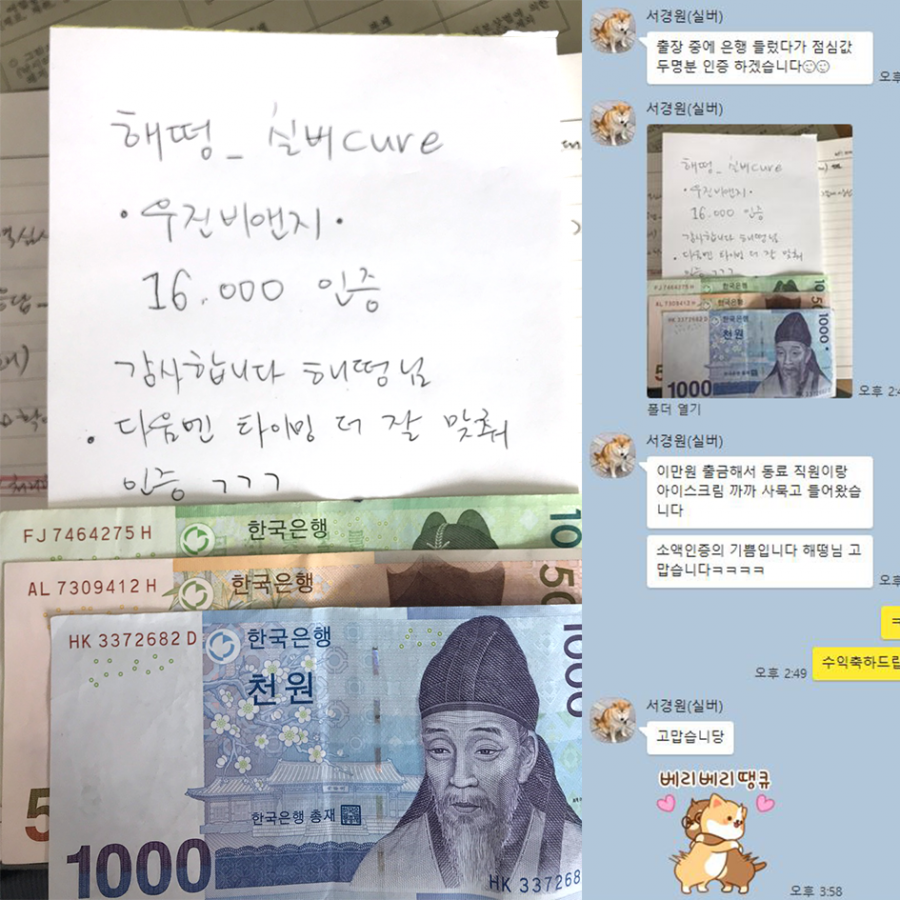 해떵_ 실버cure
· 우진비앤지 ·
16.000 인증
감사합니다 해떵님
· 다음엔 타이밍 더 잘 맞춰
인증 ㄱㄱㄱ
FJ 7464275 H
한국은행
10
AL 7309412 H
한국은행
50
5
HK 3372682 D
한국은행
천원
1000
한국은행 총재
1000
HK 337268
서경원(실버)
출장 중에 은행 들렀다가 점심값
두명분 인증 하겠습니다
오후
서경원(실버)
해떵_ 실버cure
· 우진비앤지 ·
16.000 인증
감사합니다 해떵님
· 다음엔 타이밍 더 잘 맞춰
인증 ㄱㄱㄱ
FJ 7464275 H
한국은행
10
AL 7309412 H
한국은행
50
HK 3372682 D
한국은행
천원
1000
5
1000
오후 2:4
폴더 열기
서경원(실버)
이만원 출금해서 동료 직원이랑
아이스크림 까까 사묵고 들어왔습
니다
소액인증의 기쁨입니다 해떵님 고
맙습니다ㅋㅋㅋㅋ
오후
오후 2:49
수익축하드립
서경원(실버)
고맙습니당
베리베리땡큐
오후 3:58